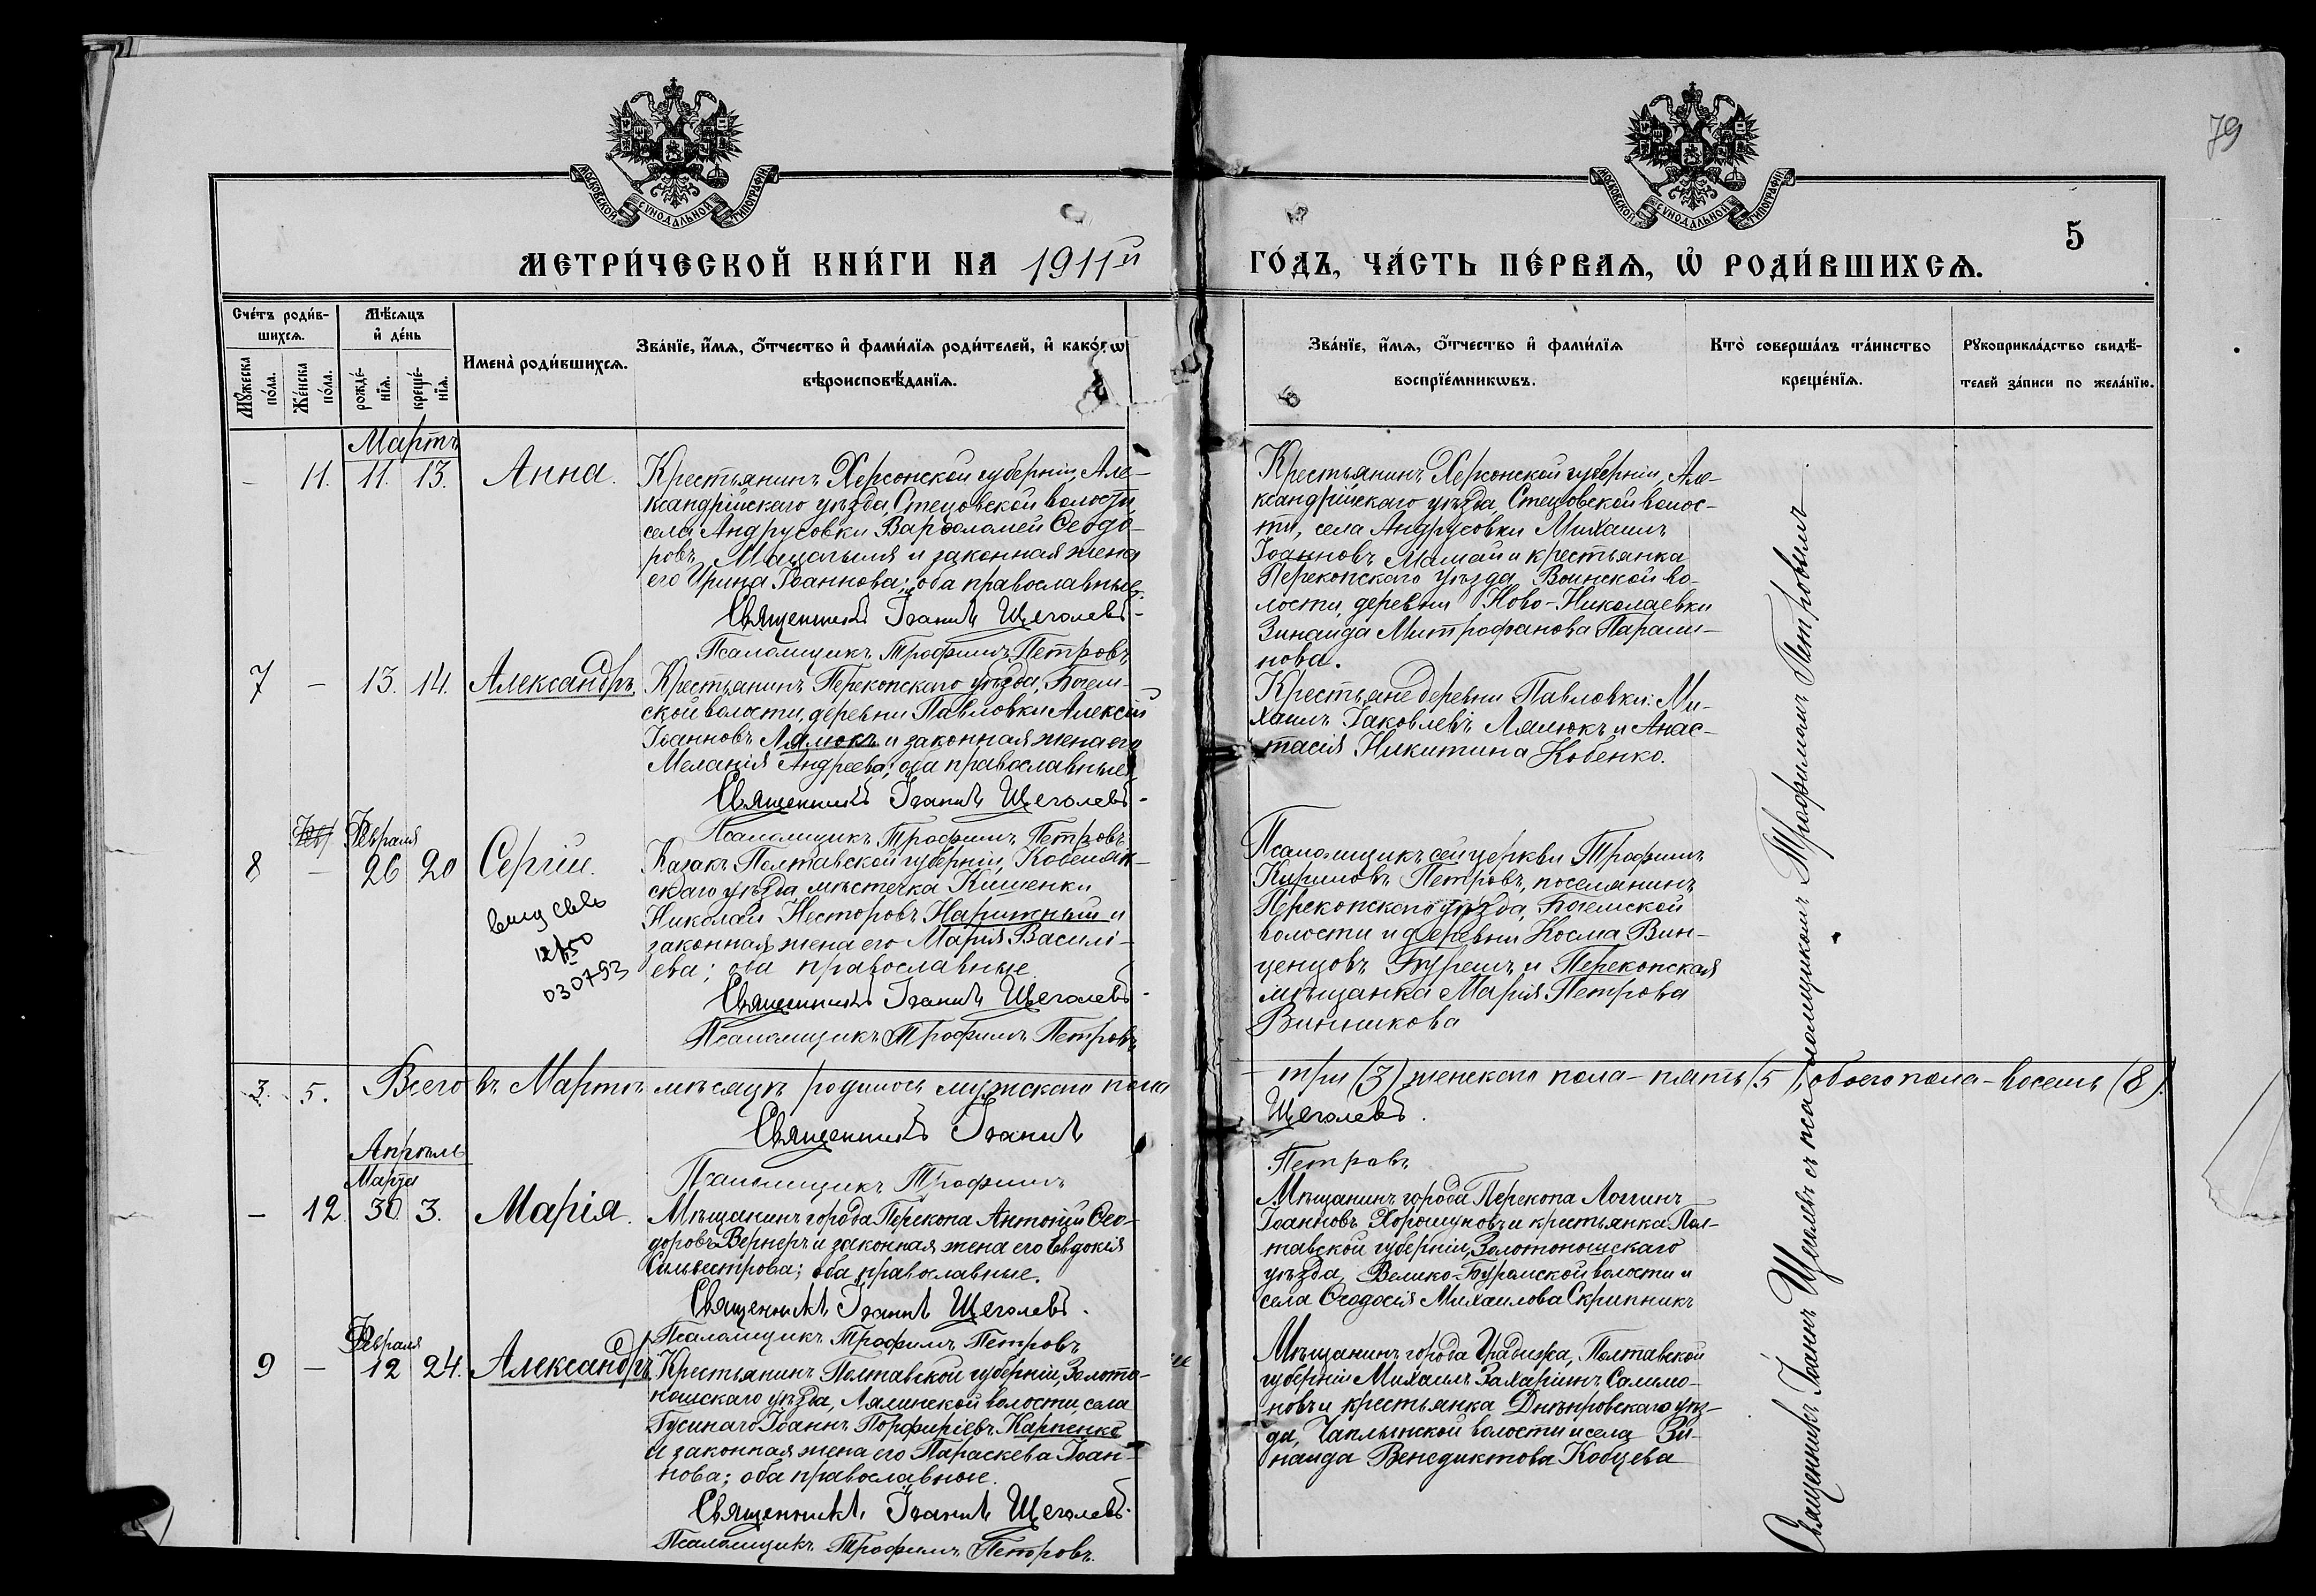 79
МОСКОВСКОЙ СѴНОДАЛЬНОЙ ТИПОГРАФІИ
МОСКОВСКОЙ СѴНОДАЛЬНОЙ ТИПОГРАФІИ
5
МЕТРИ́ЧЕСКОЙ КНИ́ГИ НА 1911й
ГО́ДЪ, ЧА́СТЬ ПЕ́РВАѦ, Ѽ РОДИ́ВШИХСѦ.
Сче́тъ роди́в-
шихсѧ.
Мꙋ́жеска по́ла.
Же́нска по́ла.
Мѣ́сѧцъ
и҆ де́нь
рожде́-
нїѧ.
креще́-
нїѧ.
Имена̀ роди́вшихсѧ.
Зва́нїе, и҆́мѧ, ѻ҆́тчество и҆ фами́лїѧ роди́телей, и҆ како́гѡ
вѣроисповѣ́данїѧ.
Зва́нїе, и҆́мѧ, ѻ҆́тчество и҆ фами́лїѧ
воспрїе́мникѡвъ.
Кто̀ соверша́лъ та́инство
креще́нїѧ.
Рꙋкоприкла́дство свидѣ́-
телей за́писи по жела́нїю.
Мартъ
- 11. 11. 13. Анна.
Крестьянинъ Херсонской губерніи, Але-
ксандрійскаго уѣзда, Стецовской волости,
села Андрусовки Варѳоломей Ѳеодо-
ровъ и законная жена
его Ирина Іоаннова; оба православные.
Священникъ Іоаннъ Щеголевъ.
Псаломщикъ Трофимъ Петровъ
Крестьянинъ Херсонской губерніи, Але-
ксандрійскаго уѣзда, Стецовской волос-
ти, села Андрусовки Михаилъ
Іоанновъ Мамай и крестьянка
Перекопскаго уѣзда, Воинской во-
лости, деревни Ново-Николаевки
Зинаида Митрофанова Парами-
нова.
7 - 13. 14. Александръ.
Крестьянинъ Перекопскаго уѣзда, Богем-
ской волости, деревни Павловки Алексій
Іоанновъ Лялюкъ и законная жена его
Меланія Андреева; оба православные.
Священникъ Іоаннъ Щеголевъ.
Псаломщикъ Трофимъ Петровъ
Крестьяне деревни Павловки: Ми-
хаилъ Іаковлевъ Лялюкъ и Анас-
тасія Никитина Кобенко.
Февраля
8 - 26 20 Сергій.
12/
030793
Казакъ Полтавской губерніи, Кобеляк-
скаго уѣзда, мѣстечка Кишенки
Николай Несторовъ Нарижный и
законная жена его Марія Василі-
ева; оба православные.
Священникъ Іоаннъ Щеголевъ.
Псаломщикъ Трофимъ Петровъ
Псаломщикъ сей церкви Трофимъ
Кириловъ Петровъ, поселянинъ
Перекопскаго уѣзда, Богемской
волости и деревни Косма Вин-
ценцовъ Бурешъ и Перекопская
мѣщанка Марія Петрова
Винникова
3. 5. Всего въ Мартѣ мѣсяцѣ родилось мужскаго пола
- три (3), женскаго пола - пять (5), обоего пола - восемь (8).
Священникъ Іоаннъ
Щеголевъ.
Псаломщикъ Трофимъ
Петровъ
Апрѣль
Марта
- 12. 30. 3. Марія.
Мѣщанинъ города Перекопа Антоній Ѳео-
доровъ Вернеръ и законная жена его Евдокія
Сильвестрова; оба православные.
Священникъ Іоаннъ Щеголевъ.
Псаломщикъ Трофимъ Петровъ
Мѣщанинъ города Перекопа Логгинъ
Іоанновъ Хорошуновъ и крестьянка Пол-
тавской губерніи, Золотоношскаго
уѣзда, Велико-Буромской волости и
села Ѳеодосія Михаилова Скрипникъ
Февраля
9 - 12 24. Александръ
Крестьянинъ Полтавской губерніи, Золото-
ношскаго уѣзда, Лялинской волости, села
Гусинаго Іоаннъ Порфиріевъ Карпенко
и законная жена его Параскева Іоан-
нова; оба православные.
Священникъ Іоаннъ Щеголевъ.
Псаломщикъ Трофимъ Петровъ.
Мѣщанинъ города Градижска, Полтавской
губерніи Михаилъ Захаріинъ Салимо-
новъ и крестьянка Днѣпровскаго уѣз-
да, Чаплынской волости и села Зи-
наида Венедиктова Кобцева
Священникъ Іоаннъ Щеголевъ съ псаломщикомъ Трофимомъ Петровымъ.